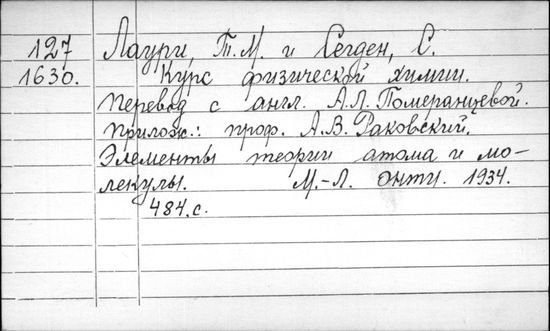 127 Лаури, Т.М. и Сегден, С.
1630. Курс физической химии.
Перевод с англ. А.Л. Померанцевой.
Прилож.: проф. А.В. Раковский.
Элементы теории атома и мо-
лекулы. М.-Л. ОНТИ. 1934.
484.с.